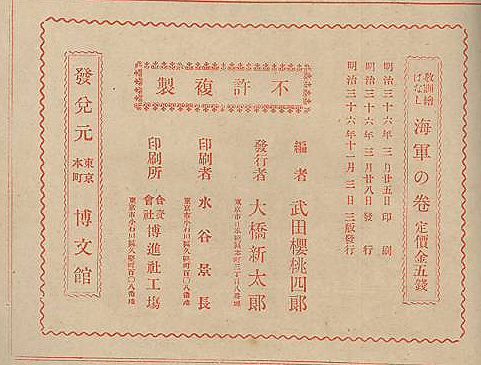 教訓繪ばなし 海軍の卷 定價金五錢
明治三十六年三月廿五日印刷
明治三十六年三月廿八日發行
明治三十六年十一月三日三版發行
不許複製
編者 武田櫻桃四郎
發行者 大橋新太郎
東京市日本橋區本町三丁目八番地
印刷者 水谷景長
東京市小石川區久堅町百〇八番地
印刷所 合資會社博進社工塲
東京市小石川區久堅町百〇八番地
發兌元 東京本町 博文館